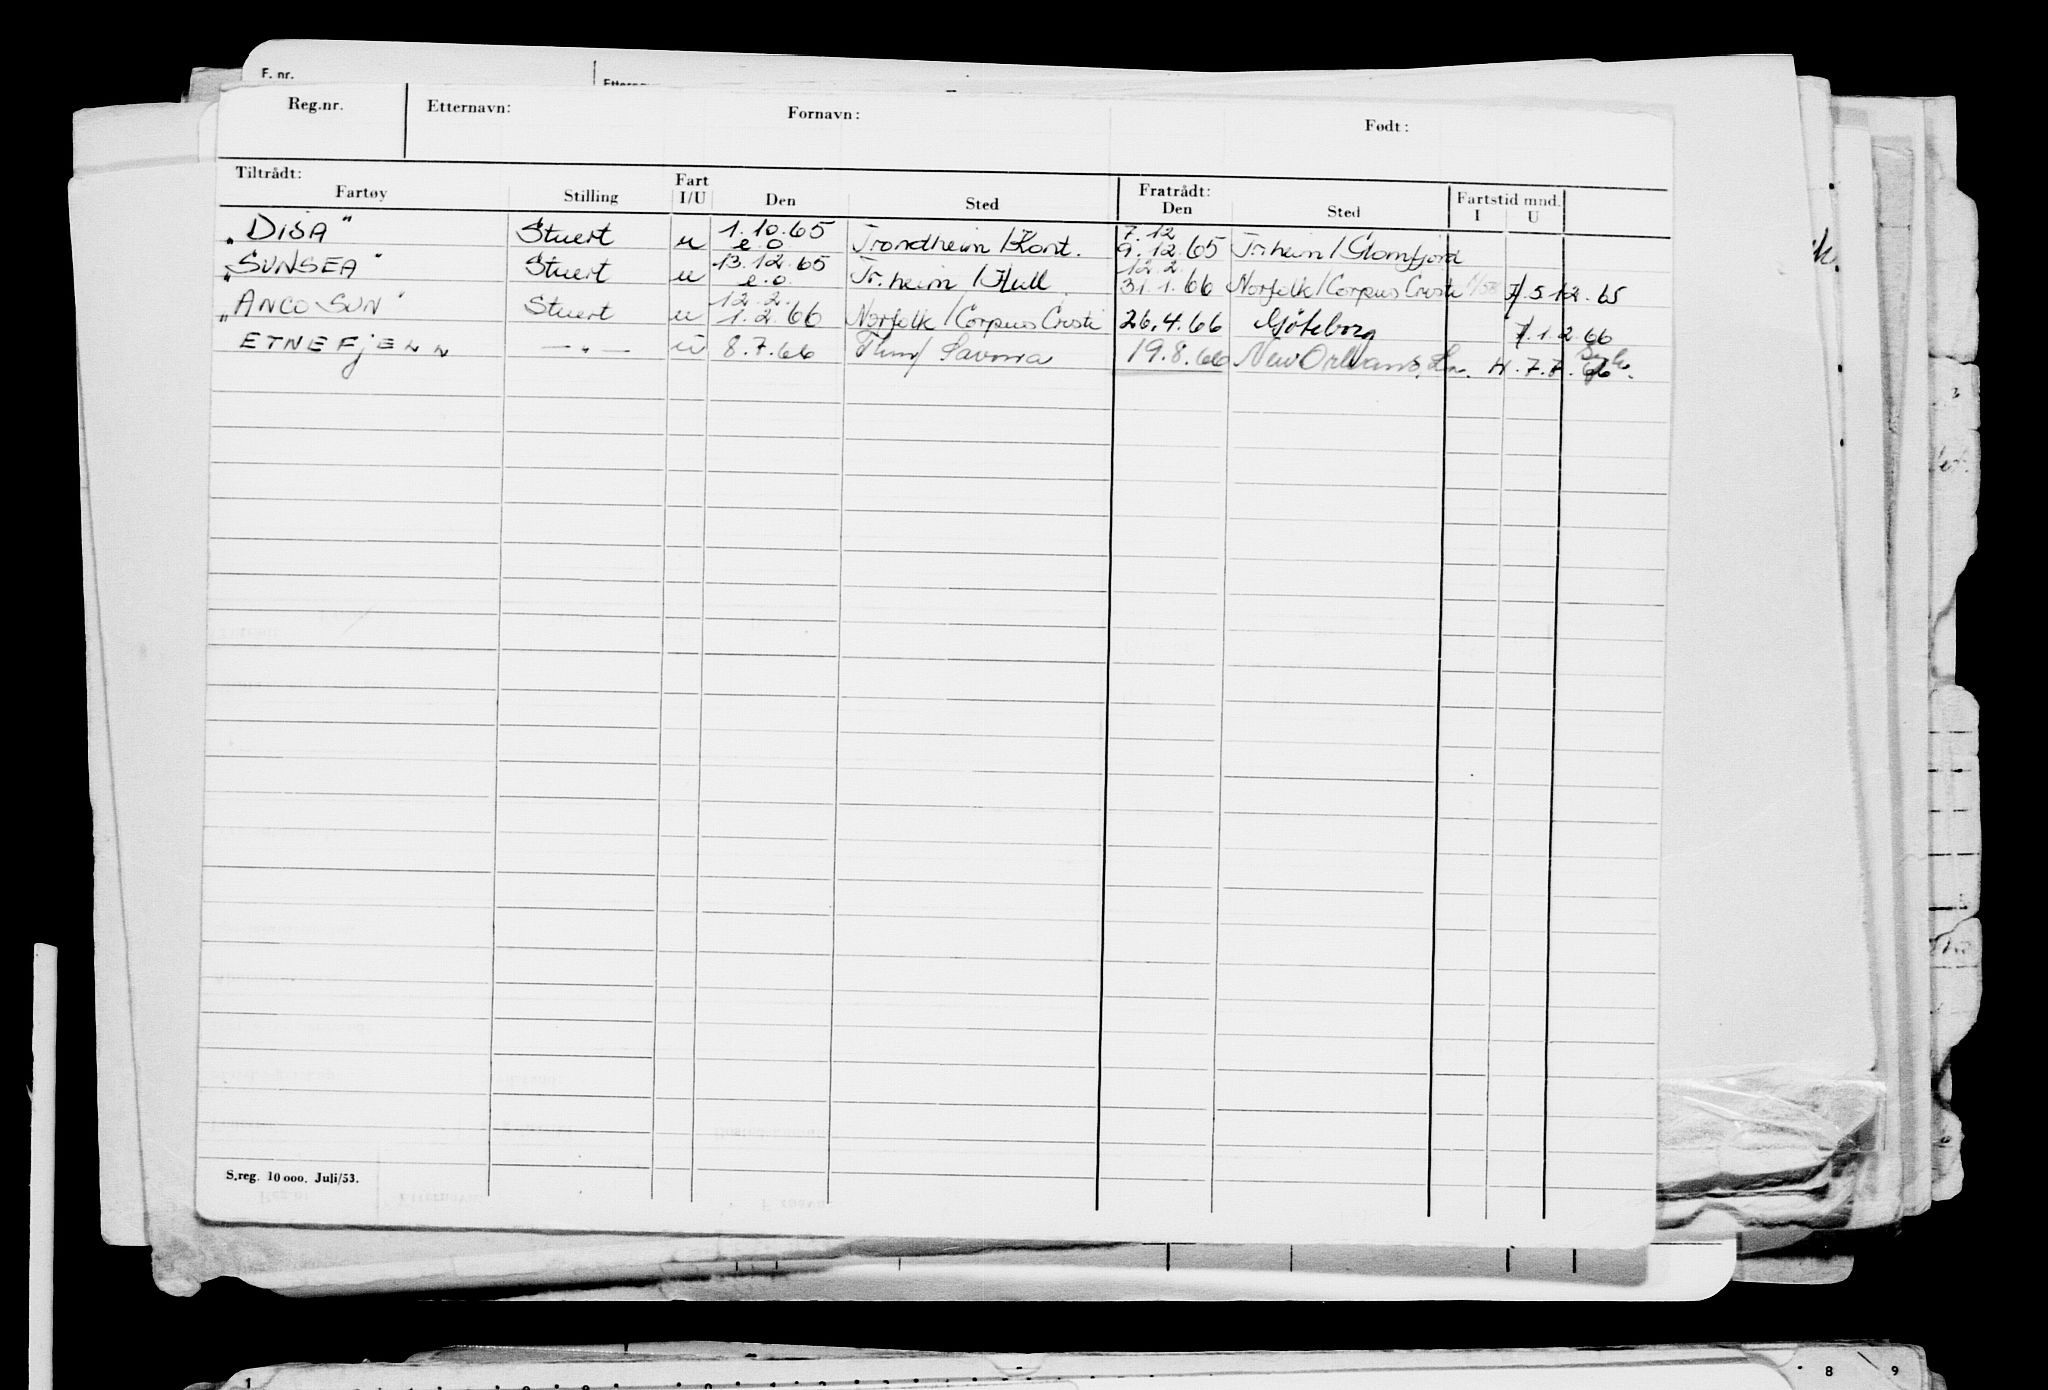 F. nr.
Reg.nr. Etternavn: Fornavn: Født:
Tiltrådt: Fartøy Stilling Fart I/U Den Sted Fratrådt: Den Sted Fartstid mnd. I U
„DISA" Stuert u 1.10.65 e.o Trondheim/Kont. 7.12 9.12.65 Tr.heim/Glomfjord
„SUNSEA" Stuert u 13.12.65 e.o Tr.heim/Hull 12.2 31.1.66 Norfolk/Corpus Cristi 7/.5.12.65
„ANCO SUN" Stuert u 12.2. 1.2.66 Norfolk/Corpus Cristi 26.4.66 Göteborg 7/.1.2.66
ETNEFJELL —„— u 8.7.66 Savona 19.8.66 New Orleans, La. H.7.7.66.
S.reg. 10 000. Juli/53.
1
8 9